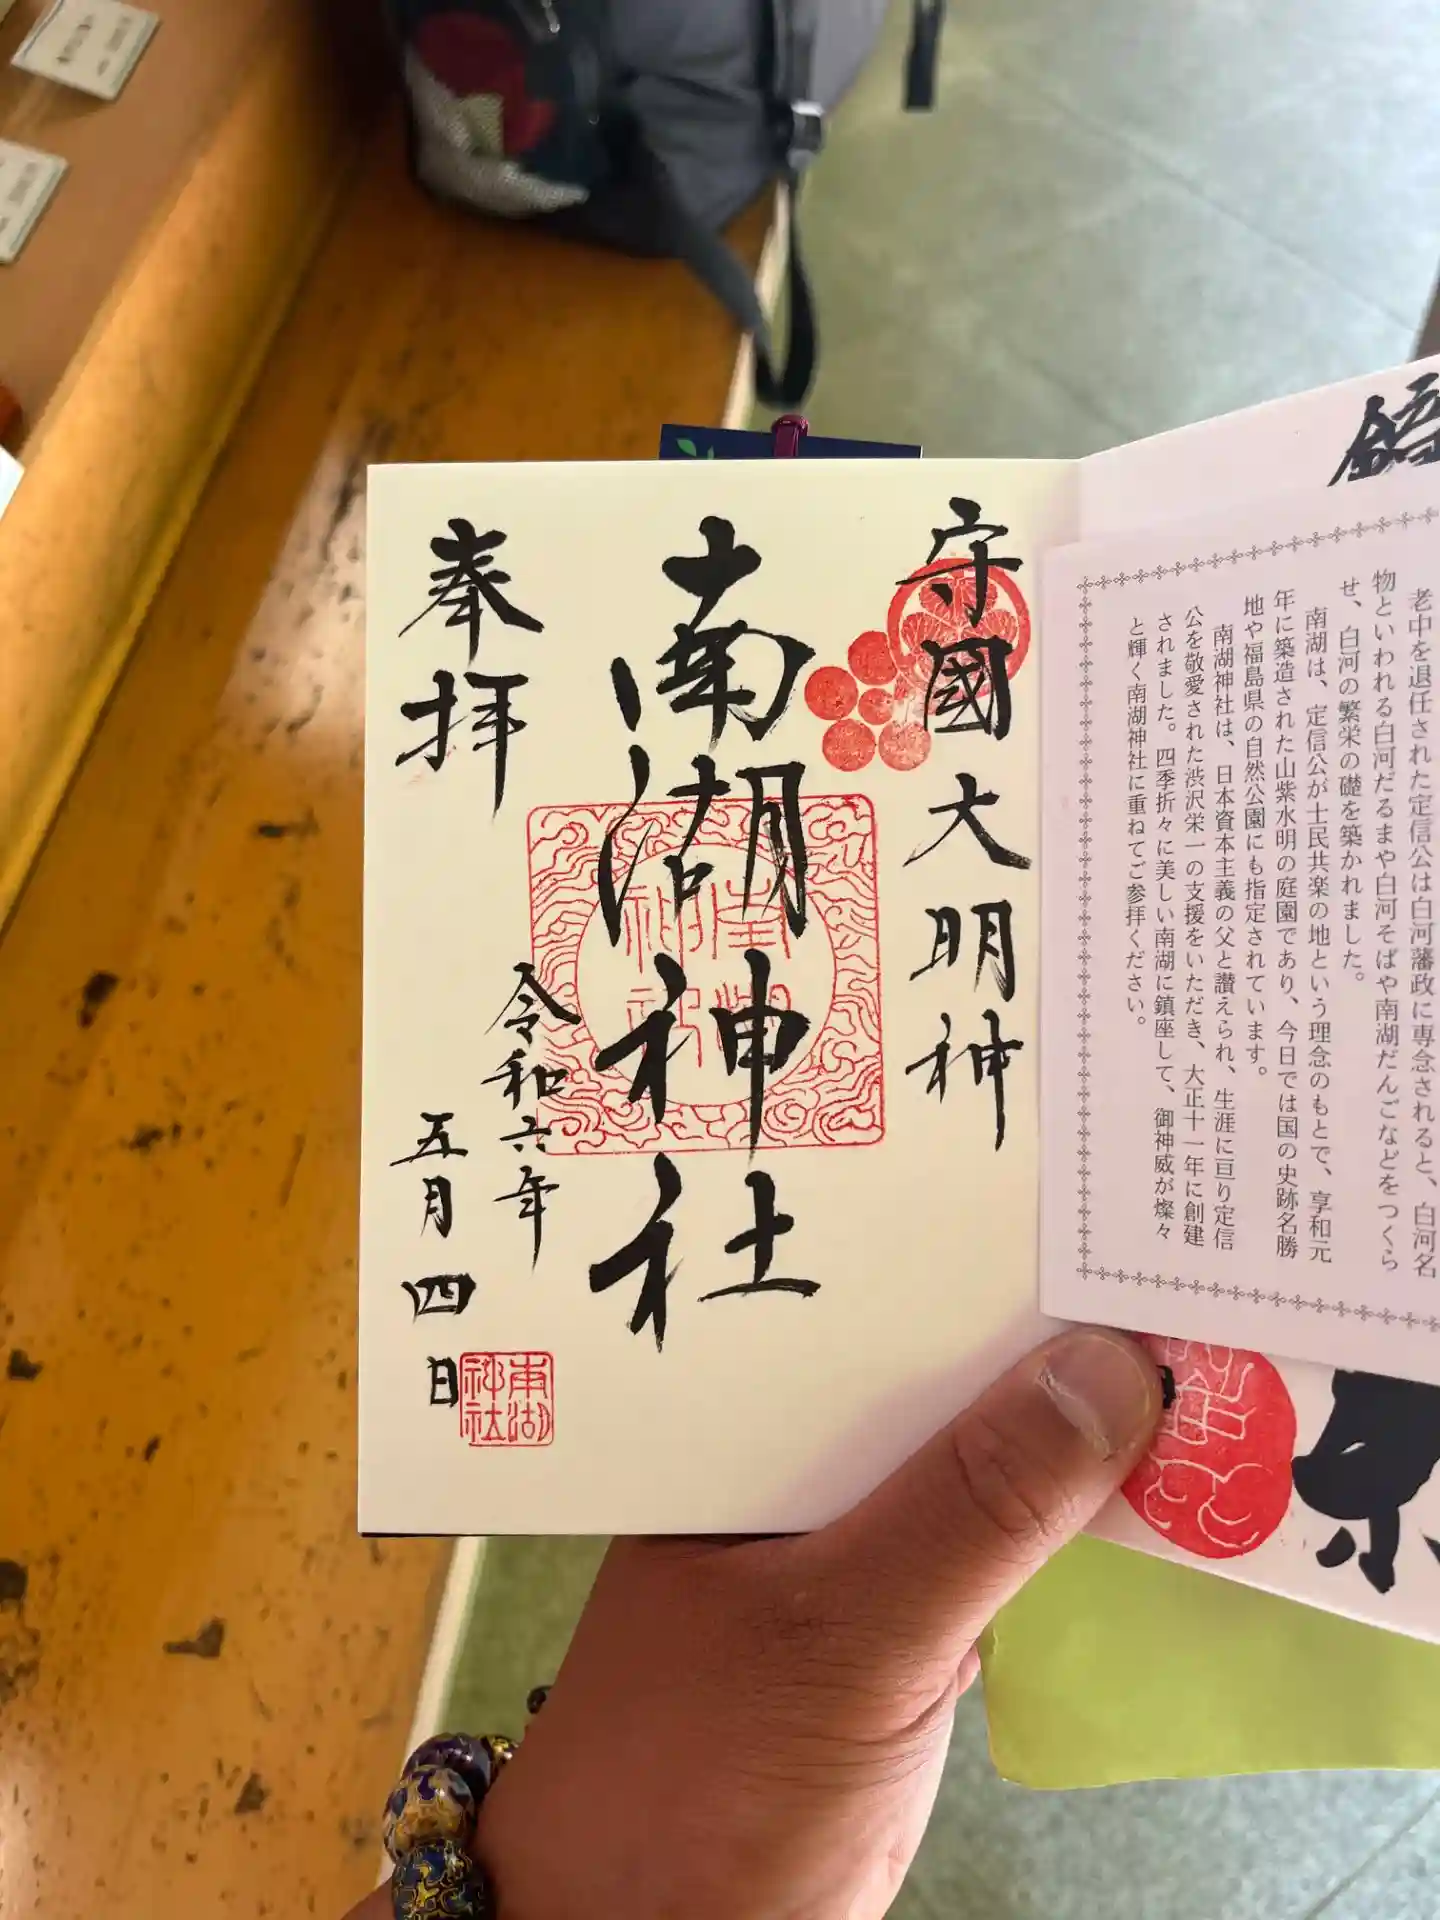 老中を退任された定信公は白河藩政に専念されると、白河名
物といわれる白河だるまや白河そばや南湖だんごなどをつくら
せ、白河の繁栄の礎を築かれました。
南湖は、定信公が士民共楽の地という理念のもとで、享和元
年に築造された山紫水明の庭園であり、今日では国の史跡名勝
地や福島県の自然公園にも指定されています。
南湖神社は、日本資本主義の父と讃えられ、生涯に亘り定信
公を敬愛された渋沢栄一の支援をいただき、大正十一年に創建
されました。四季折々に美しい南湖に鎮座して、御神威が燦々
と輝く南湖神社に重ねてご参拝ください。
守國大明神
南湖神社
南湖神社
奉拝
令和六年
五月四日
南湖
神社